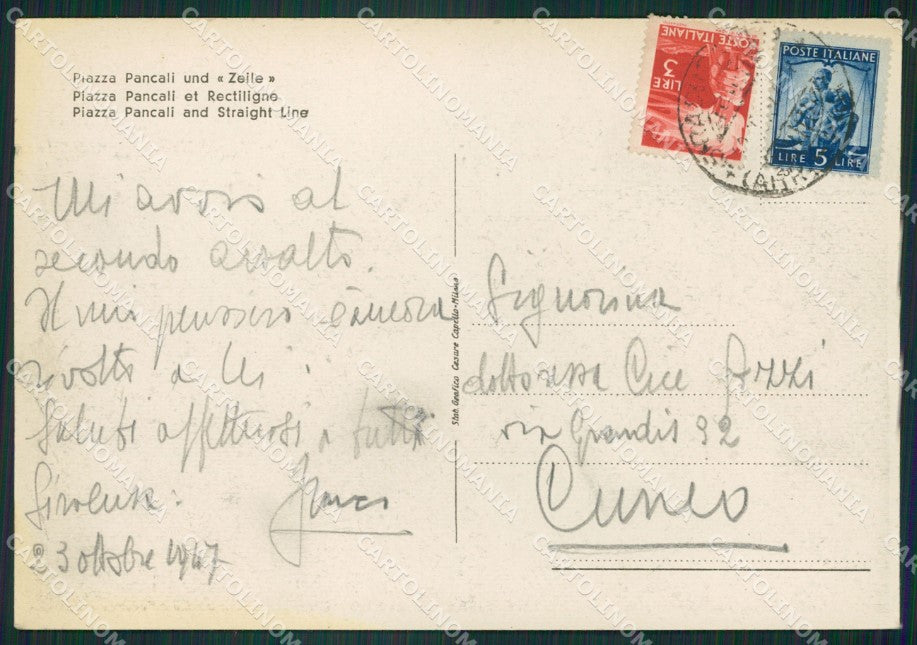 Piazza Pancali und « Zeile »
Piazza Pancali et Rectiligne
Piazza Pancali and Straight Line
POSTE ITALIANE
LIRE 3
POSTE ITALIANE
LIRE 5 LIRE
Mi avvio al
secondo assalto.
Il mio pensiero è ancora
rivolto a Lei.
Saluti affettuosi a tutti
3 ottobre 1947
Stab. Grafico Cesare Capello - Milano
Signorina
dottoressa Cice
via Grandis 92
Cuneo
CARTOLINOMANIA